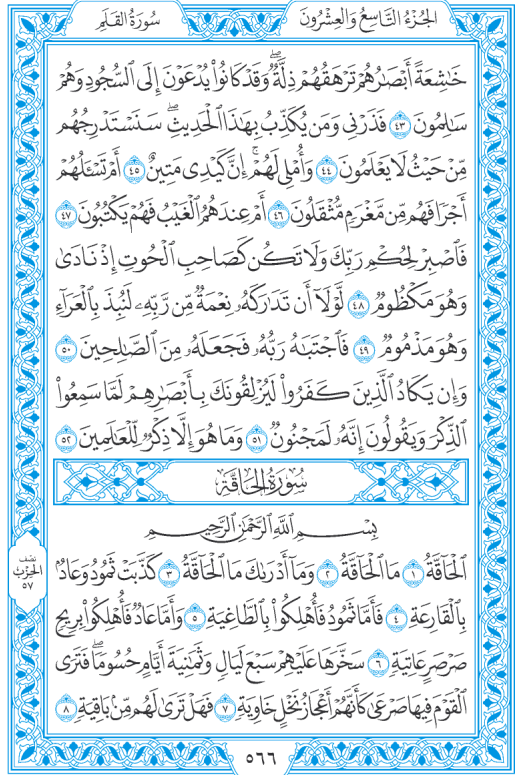 الجُزْءُ التَّاسِعُ وَالعِشْرُونَ
سُورَةُ القَلَمِ
خَٰشِعَةً أَبْصَٰرُهُمْ تَرْهَقُهُمْ ذِلَّةٌۖ وَقَدْ كَانُوا۟ يُدْعَوْنَ إِلَى ٱلسُّجُودِ وَهُمْ
سَٰلِمُونَ ٤٣ فَذَرْنِى وَمَن يُكَذِّبُ بِهَٰذَا ٱلْحَدِيثِۖ سَنَسْتَدْرِجُهُم
مِّنْ حَيْثُ لَا يَعْلَمُونَ ٤٤ وَأُمْلِى لَهُمْۚ إِنَّ كَيْدِى مَتِينٌ ٤٥ أَمْ تَسْـَٔلُهُمْ
أَجْرًا فَهُم مِّن مَّغْرَمٍ مُّثْقَلُونَ ٤٦ أَمْ عِندَهُمُ ٱلْغَيْبُ فَهُمْ يَكْتُبُونَ ٤٧
فَٱصْبِرْ لِحُكْمِ رَبِّكَ وَلَا تَكُن كَصَاحِبِ ٱلْحُوتِ إِذْ نَادَىٰ
وَهُوَ مَكْظُومٌ ٤٨ لَّوْلَآ أَن تَدَٰرَكَهُۥ نِعْمَةٌ مِّن رَّبِّهِۦ لَنُبِذَ بِٱلْعَرَآءِ
وَهُوَ مَذْمُومٌ ٤٩ فَٱجْتَبَٰهُ رَبُّهُۥ فَجَعَلَهُۥ مِنَ ٱلصَّٰلِحِينَ ٥٠
وَإِن يَكَادُ ٱلَّذِينَ كَفَرُوا۟ لَيُزْلِقُونَكَ بِأَبْصَٰرِهِمْ لَمَّا سَمِعُوا۟
ٱلذِّكْرَ وَيَقُولُونَ إِنَّهُۥ لَمَجْنُونٌ ٥١ وَمَا هُوَ إِلَّا ذِكْرٌ لِّلْعَٰلَمِينَ ٥٢
سُورَةُ الحَاقَّةِ
بِسْمِ ٱللَّهِ ٱلرَّحْمَٰنِ ٱلرَّحِيمِ
ٱلْحَآقَّةُ ١ مَا ٱلْحَآقَّةُ ٢ وَمَآ أَدْرَىٰكَ مَا ٱلْحَآقَّةُ ٣ كَذَّبَتْ ثَمُودُ وَعَادٌۢ
بِٱلْقَارِعَةِ ٤ فَأَمَّا ثَمُودُ فَأُهْلِكُوا۟ بِٱلطَّاغِيَةِ ٥ وَأَمَّا عَادٌ فَأُهْلِكُوا۟ بِرِيحٍ
صَرْصَرٍ عَاتِيَةٍ ٦ سَخَّرَهَا عَلَيْهِمْ سَبْعَ لَيَالٍ وَثَمَٰنِيَةَ أَيَّامٍ حُسُومًاۖ فَتَرَى
ٱلْقَوْمَ فِيهَا صَرْعَىٰ كَأَنَّهُمْ أَعْجَازُ نَخْلٍ خَاوِيَةٍ ٧ فَهَلْ تَرَىٰ لَهُم مِّنۢ بَاقِيَةٍ ٨
نصف
الحزب
٥٧
٥٦٦